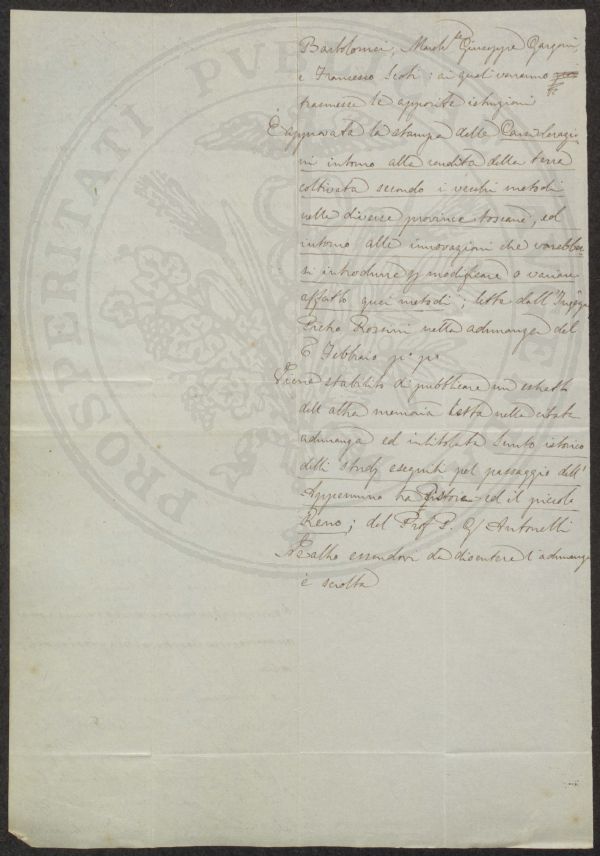 Bartolomei, March.se Giuseppe Garzoni,
e Francesco Scoti: ai quali verranno
trasmesse le apposite istruzioni
È approvata la stampa delle Considerazio
ni intorno alla rendita della terra
coltivata secondo i vecchi metodi
nelle diverse province toscane, ed
intorno alle innovazioni che varebbe
si introdurre o modificare o variare
affatto quei metodi; letta dall'Ingegn.
Pietro Rossini nella adunanza del
6 Febbraio p.o p.o
Viene stabilito di pubblicare un estratto
dell'altra memoria letta nella citata
adunanza ed intitolata Sunto istorico
delli studj eseguiti pel passaggio dell'
Appennino tra Pistoia ed il piccolo
Reno; del Prof P. G. Antonelli
Ne altro essendovi da discutere l'adunanza
è sciolta
PROSPERITATI PUBLICAE